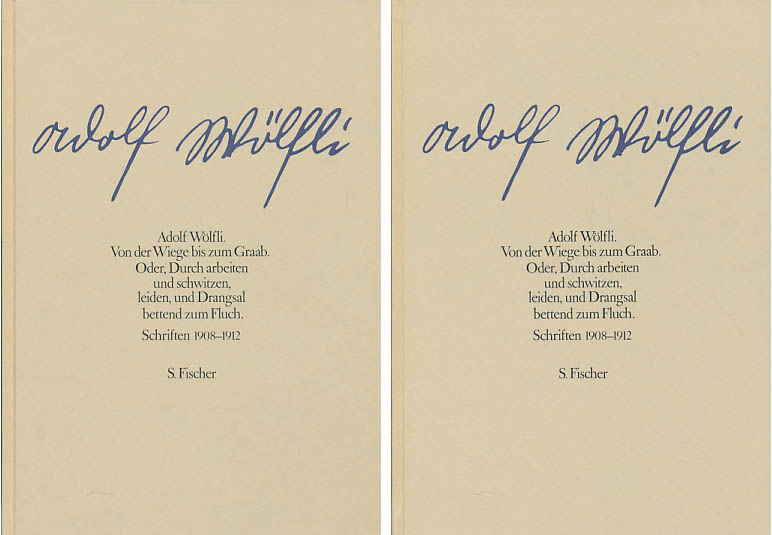 Adolf Wölfli
Adolf Wölfli.
Von der Wiege bis zum Graab.
Oder, Durch arbeiten
und schwitzen,
leiden, und Drangsal
bettend zum Fluch.
Schriften 1908–1912
S. Fischer
Adolf Wölfli
Adolf Wölfli.
Von der Wiege bis zum Graab.
Oder, Durch arbeiten
und schwitzen,
leiden, und Drangsal
bettend zum Fluch.
Schriften 1908–1912
S. Fischer